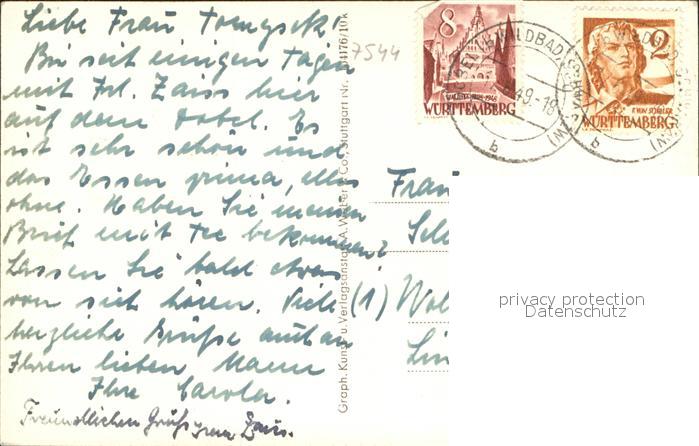 Liebe Frau
Bin seit einigen Tagen
mit Frl. Zaiss hier
auf dem Dobel. Es
ist sehr schön und
das Essen prima, alles
ohne. Haben Sie meinen
Brief mit Tee bekommen?
Lassen Sie bald etwas
von sich hören. Viele
herzliche Grüße auch an
Ihren lieben Mann
Ihre Carola.
Freundlichen Gruß Zaiss.
7544
4176/10k
Graph. Kunst- u. Verlagsanstalt A. Weber & Co., Stuttgart Nr.
8
WÜRTTEMBERG
2
F. VON SCHILLER
WÜRTTEMBERG
WILDBAD
49.-18
b
b
Frau
(1)
Lin
privacy protection
Datenschutz